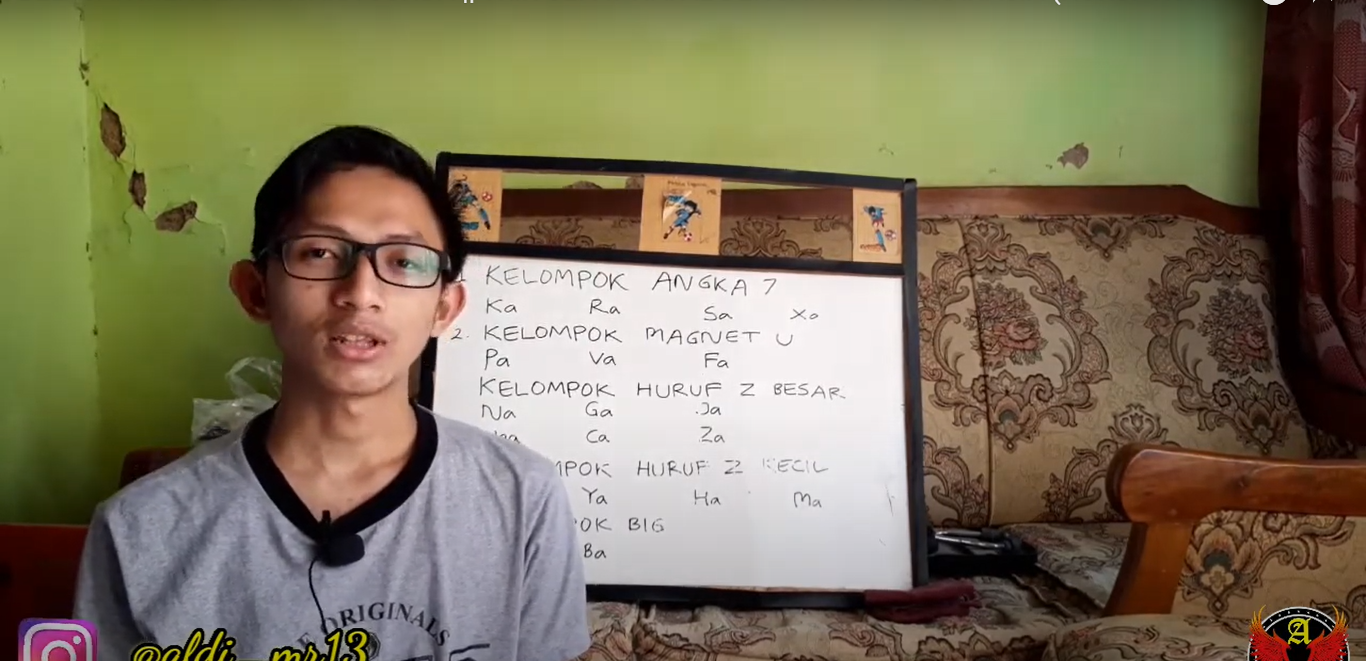 KELOMPOK ANGKA 7
Ka Ra Sa Xa
2. KELOMPOK MAGNET U
Pa Va Fa
KELOMPOK HURUF Z BESAR
Na Ga Ja
Ca Za
HURUF Z KECIL
Ya Ha Ma
BIG
Ba
ORIGINALS
@aldi_mr13
A